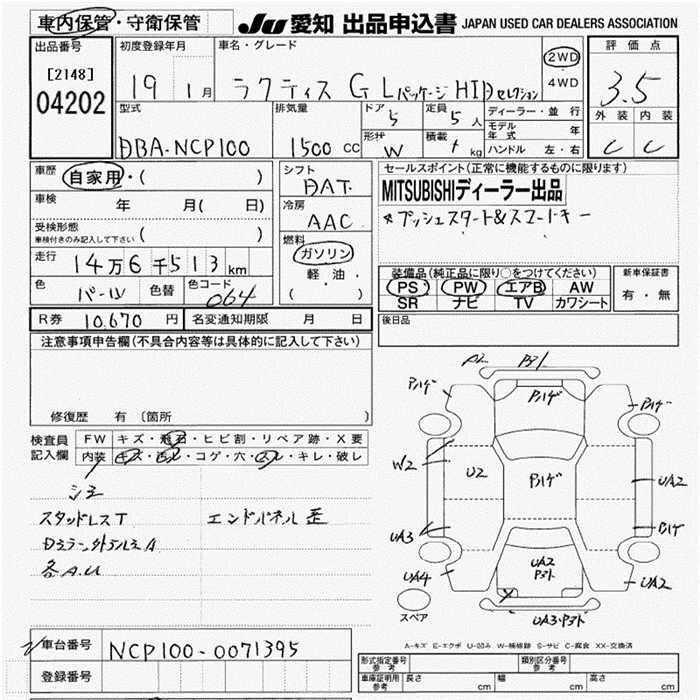 車内保管・守衛保管
JU 愛知 出品申込書 JAPAN USED CAR DEALERS ASSOCIATION
出品番号
[2148]
04202
初度登録年月
19 1月
車名・グレード
ラクティス G Lパッケージ HIDセレクション
2WD
4WD
評価点
3.5
外装 内装
C C
型式
DBA-NCP100
排気量
1500 CC
ドア
5
定員
5人
形状
W
積載
kg
ディーラー・並行
モデル年式 年
ハンドル 左・右
車歴
自家用・( )
車検 年 月( 日)
受検形態
車検付きのみ記入して下さい ( )
走行
14万6千513km
色 パール 色替 色コード 064
シフト
DAT
冷房
AAC
燃料
ガソリン
軽油・
( )
セールスポイント(正常に機能するものに限ります)
MITSUBISHIディーラー出品
*プッシュスタート&スマートキー
装備品(純正品に限り○をつけてください)
PS PW エアB AW
SR ナビ TV カワシート
新車保証書
有・無
後日品
R券 10,670 円 名変通知期限 月 日
注意事項申告欄(不具合内容等は具体的に記入して下さい)
修復歴 有〔箇所 〕
検査員記入欄
FW キズ・飛石・ヒビ割・リペア跡・X要
内装 キズ・汚レ・コゲ・穴・スレ・キレ・破レ
シミ
スタッドレスT エンドパネル歪
Dミラー外アルミA
各A.U
バハゲ
W2
U2
UA3
UA4
UA2
UA2
UA2
UA3・P3ト
スペア
A-キズ E-エクボ U-凹み W-補修跡 S-サビ C-腐食 XX-交換済
車台番号 NCP100-0071395
登録番号
形式指定番号 参考
類別区分番号 参考
車庫証明用 参考 長さ cm 幅 cm 高さ cm